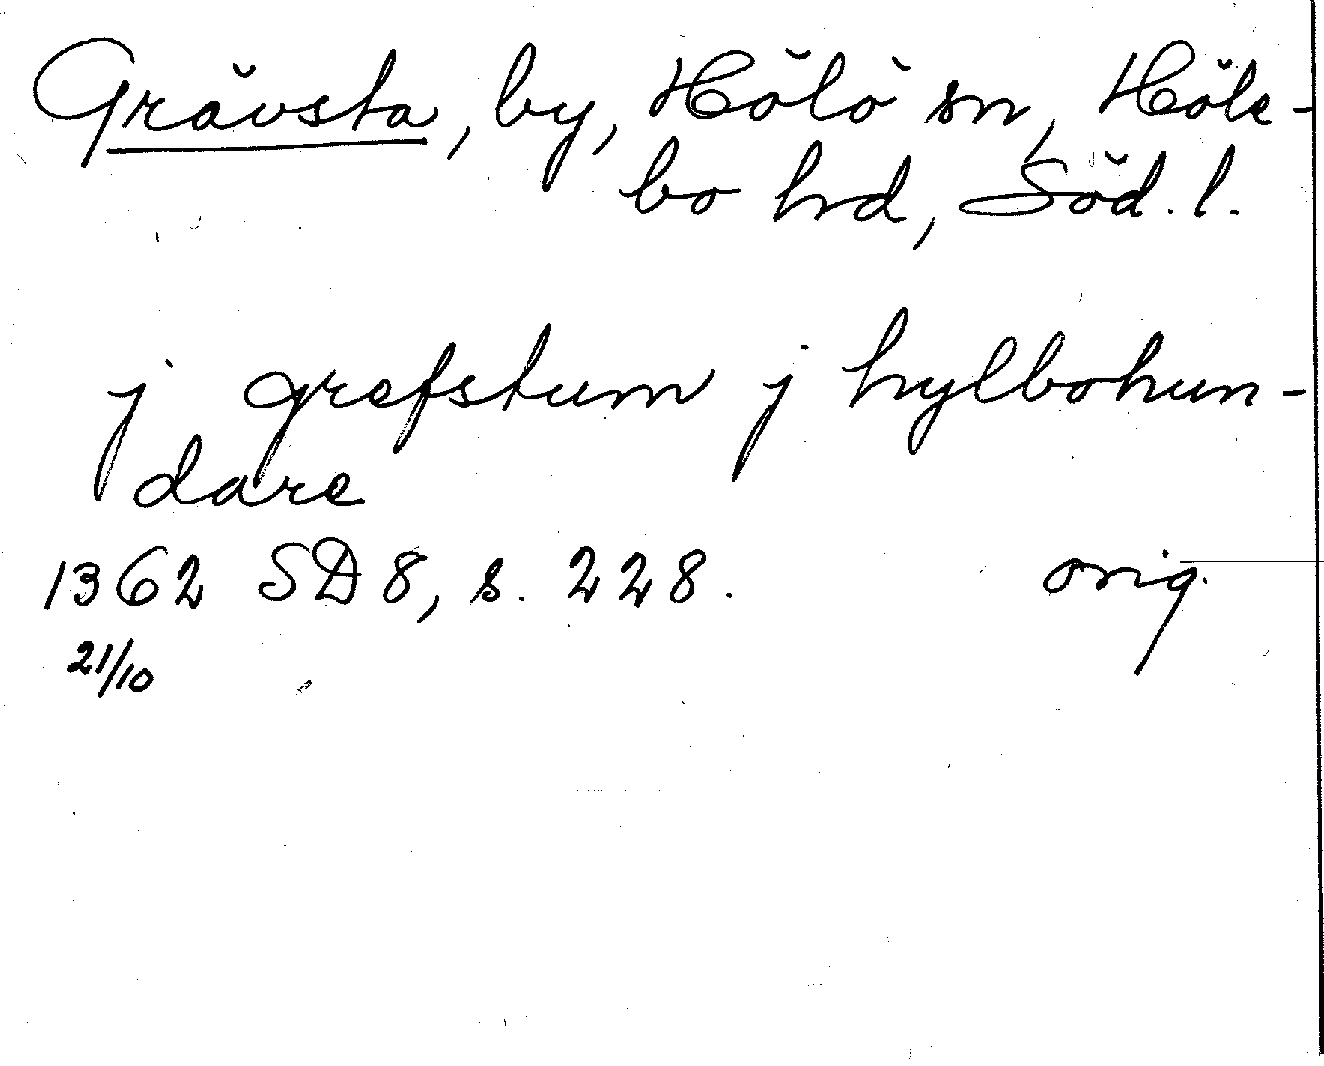 Grävsta, by, Hölö sn, Höle-
bo hrd, Söd. l.
j grefstum j hylbohun-
dare
1362 SD 8, s. 228. orig.
21/10